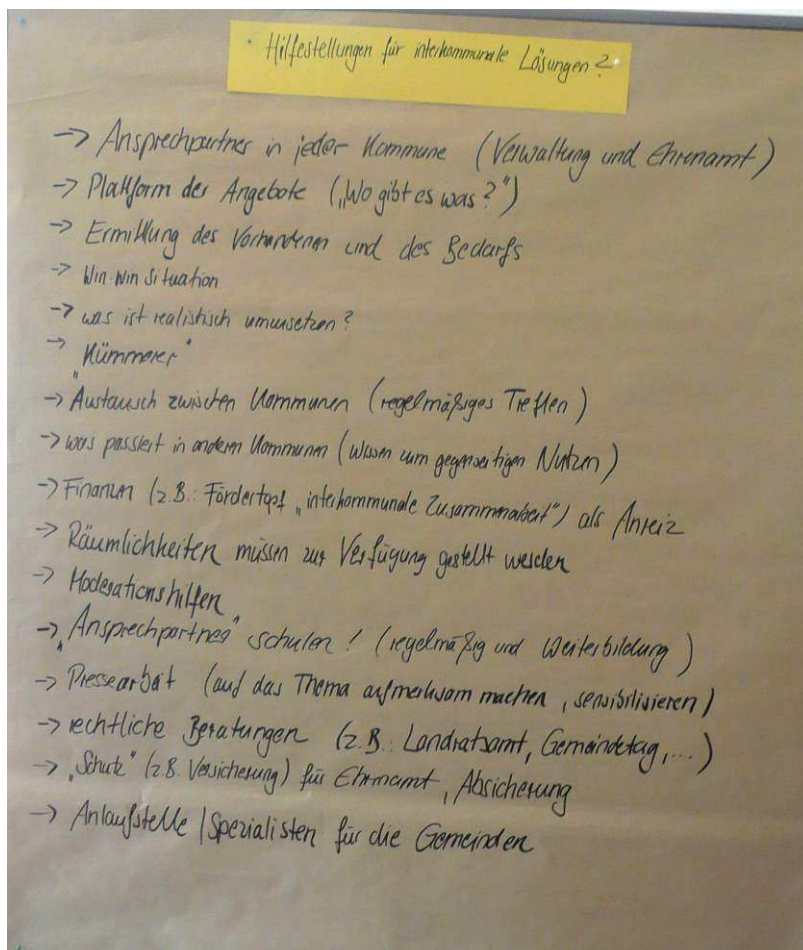 Hilfestellungen für interkommunale Lösungen?
-> Ansprechpartner in jeder Kommune (Verwaltung und Ehrenamt)
-> Plattform der Angebote („Wo gibt es was?")
-> Ermittlung des Vorhandenen und des Bedarfs
-> Win-Win Situation
-> was ist realistisch umzusetzen?
-> "Kümmerer"
-> Austausch zwischen Kommunen (regelmäßiges Treffen)
-> was passiert in anderen Kommunen (Wissen um gegenseitigen Nutzen)
-> Finanzen (z.B.: Fördertopf „interkommunale Zusammenarbeit") als Anreiz
-> Räumlichkeiten müssen zur Verfügung gestellt werden
-> Moderationshilfen
-> „Ansprechpartner" schulen! (regelmäßig und Weiterbildung)
-> Pressearbeit (auf das Thema aufmerksam machen, sensibilisieren)
-> rechtliche Beratungen (z.B.: Landratsamt, Gemeindetag,...)
-> „Schutz" (z.B. Versicherung) für Ehrenamt, Absicherung
-> Anlaufstelle / Spezialisten für die Gemeinden